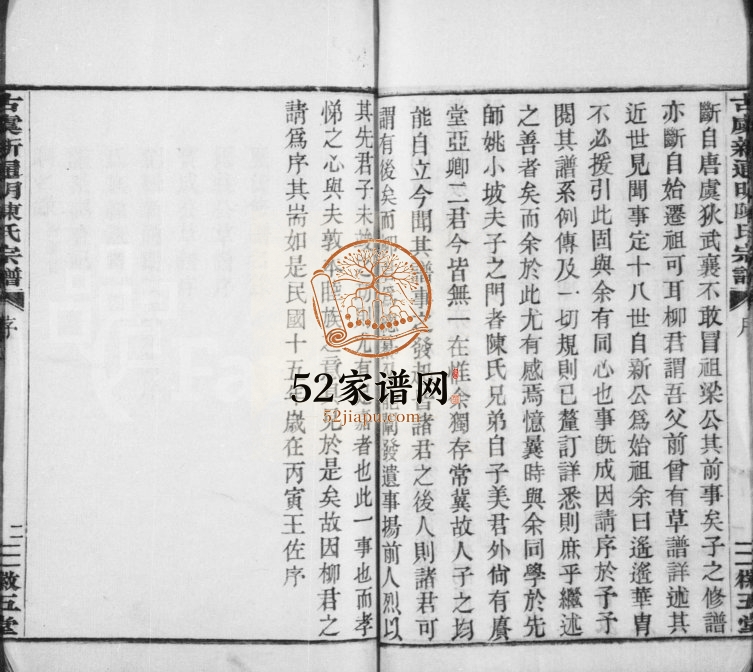 斷自唐虞狄武襄不敢冒祖梁公其前事矣子之修譜
亦斷自始遷祖可耳柳君謂吾父前曾有草譜詳述其
近世見聞事定十八世自新公爲始祖余曰遙遙華冑
不必援引此固與余有同心也事旣成因請序於予予
閱其譜系例傳及一切規則已釐訂詳悉則庶乎繼述
之善者矣而余於此尤有感焉憶曩時與余同學於先
師姚小坡夫子之門者陳氏兄弟自子美君外尙有賡
堂亞卿二君今皆無一在惟余獨存常冀故人子之均
能自立今聞其譜事之發起皆諸君之後人則諸君可
謂有後矣而 闡發遺事揚前人烈以
其先君子未 者也此一事也而孝
悌之心與夫敦本睦族之意 見於是矣故因柳君之
請爲序其耑如是民國十五年歲在丙寅王佐序
古虞新通明陳氏宗譜
序
二
敬五堂
古虞新通明陳氏宗譜
序
二
敬五堂
52家谱网
52jiapu.com